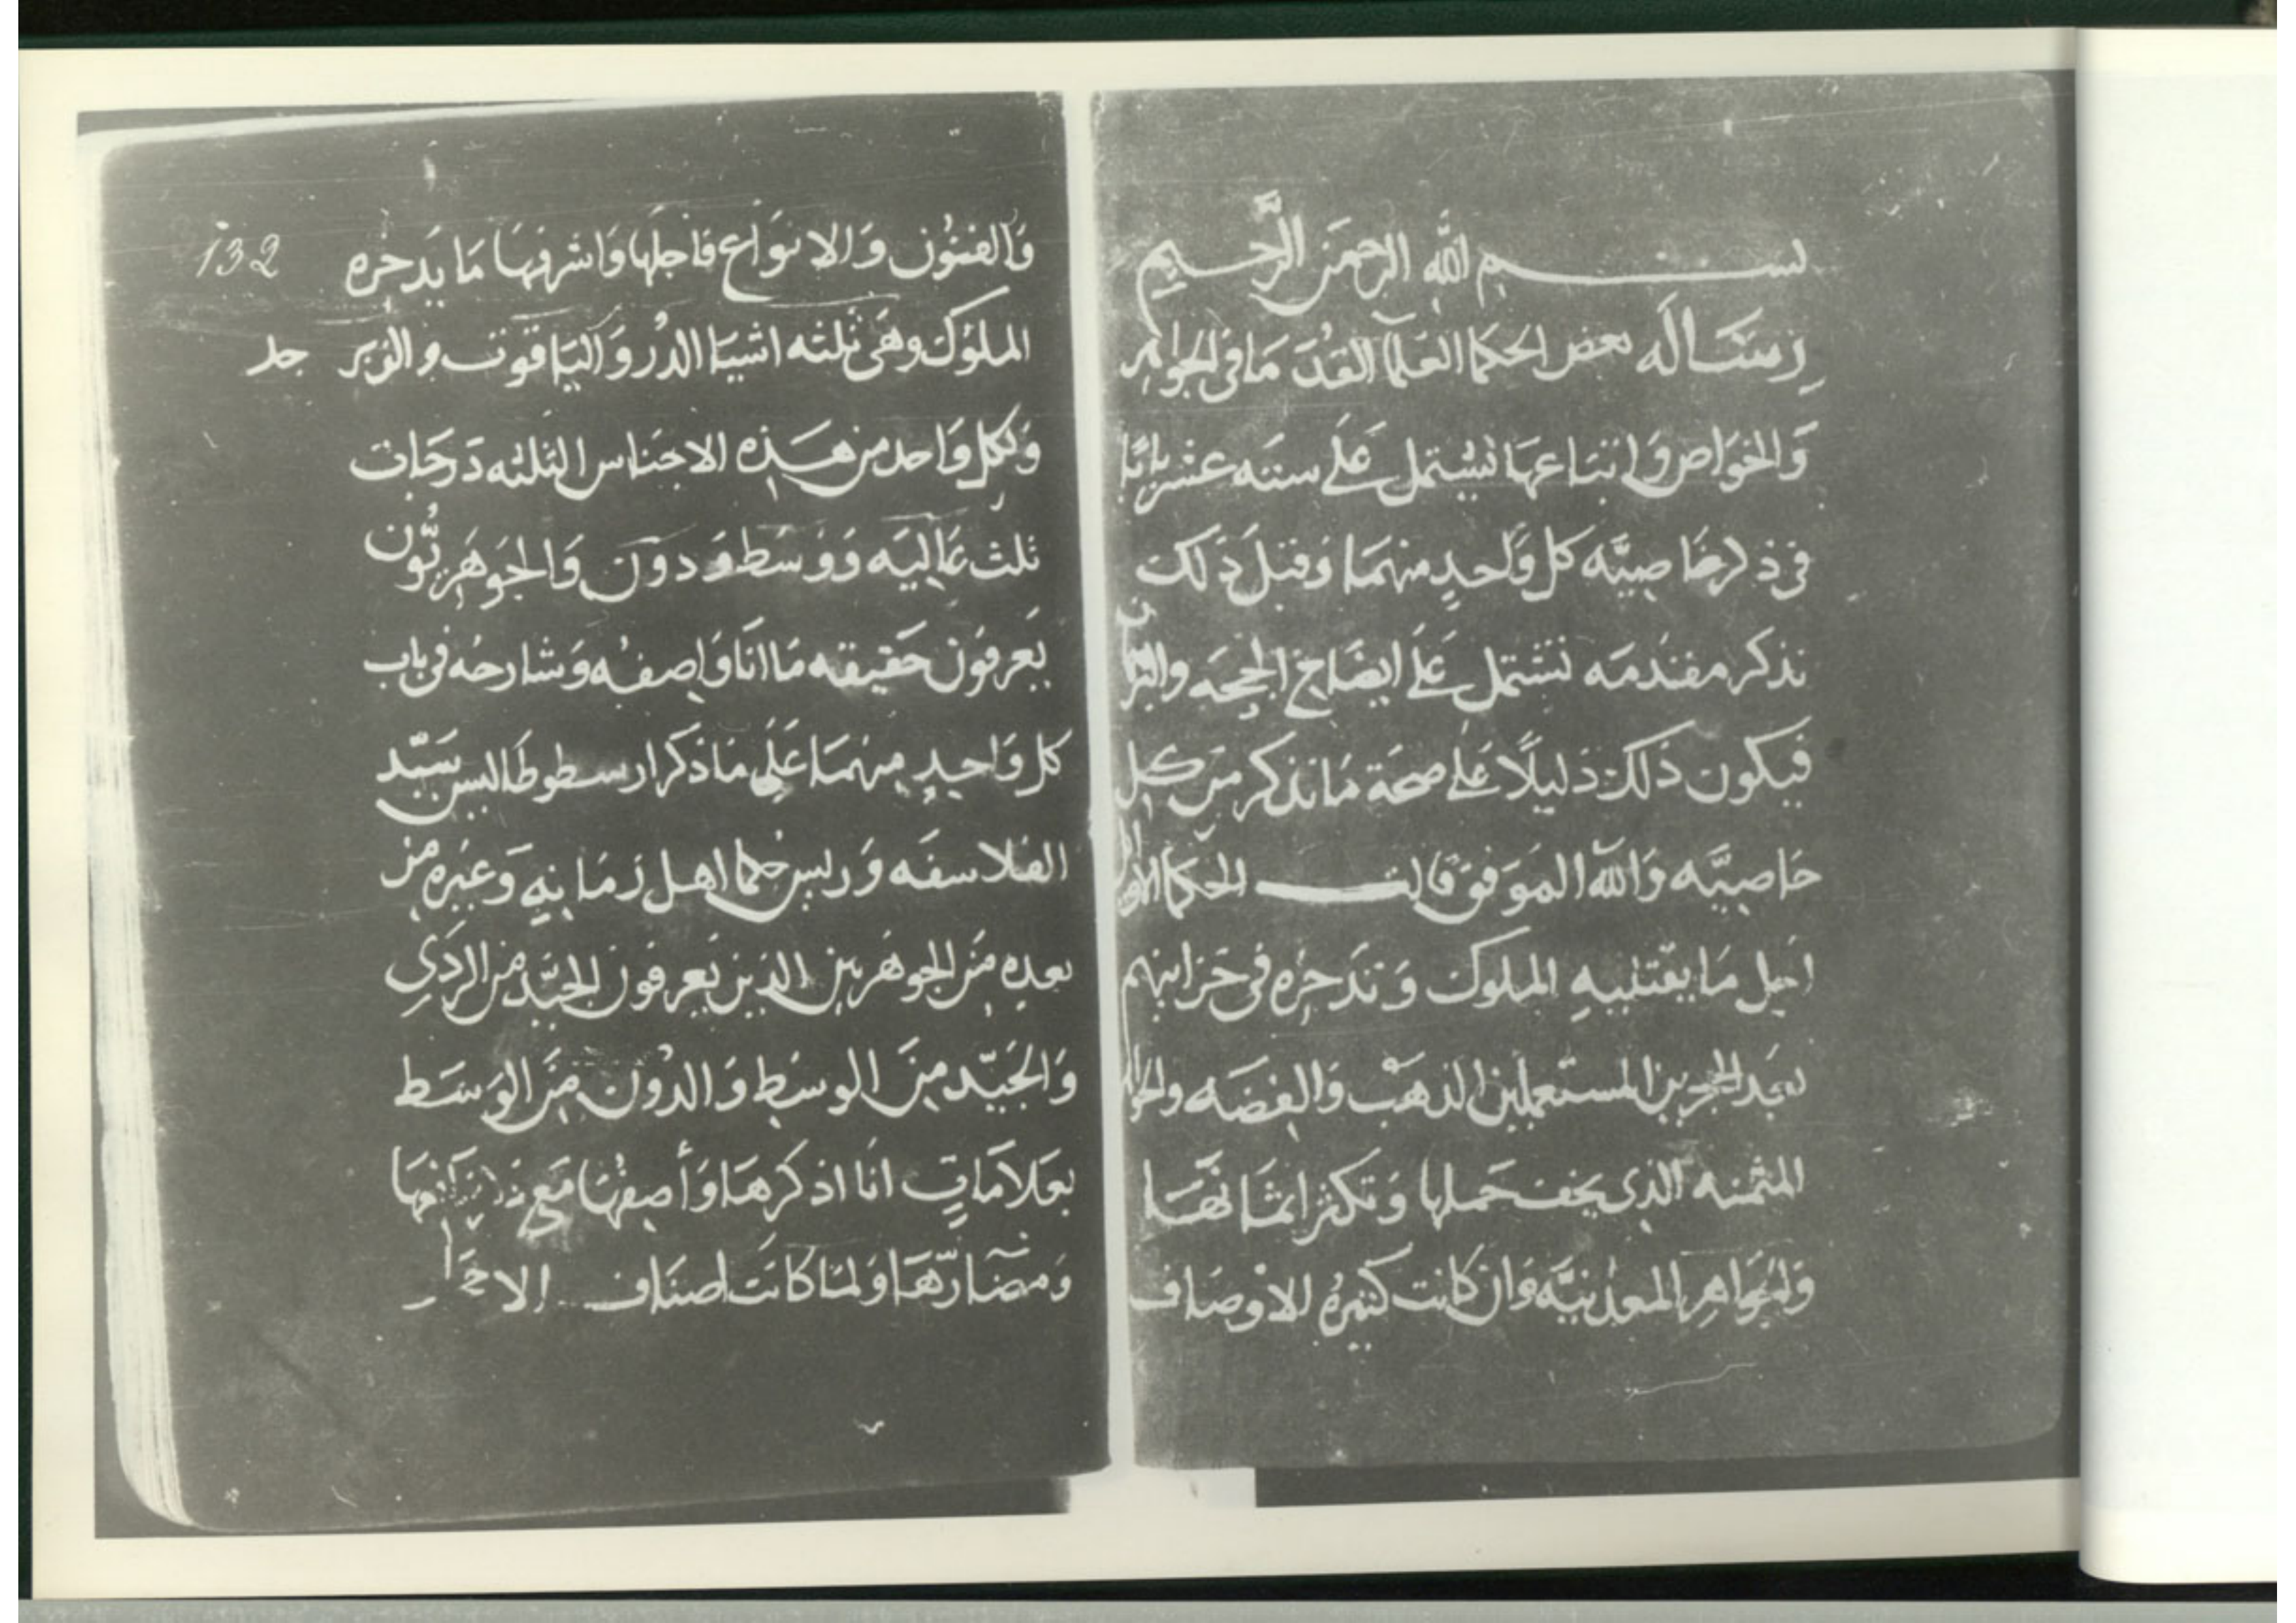 بســـــم الله الرحمن الرحيم
رسَالَه بعض الحكما العلمآ القدمَا فى الجواهر
وَالخوَاص وَ تشتمل عَلَى ستته عشر بابًا
فى ذكر خاصِيَّه كل وَاحدٍ منهمَا وَقبل ذَلك
نذكر مقدمَه تشتمل عَلَى ايضَاح الحججَه
فيكون ذَلك دَليلًا عَلى صحَة مَا نذكر مِن كل
خَاصِيَّه وَالله الموَفق قالت الحكما
اجل مَا يقتنيهِ الملوك وَتدَّخِره فى خزاينهم
الذهَب وَالفضَه
المثمنه الذى يخف حَملها وَتكثر اثمَانهَا
وَالجوَاهِر المعدنيَّه وَان كانت كثيرهُ الاوْصَاف
132
وَالفنوُن وَالانوَاع فاجلهَا وَاشرفهَا مَا يَدخره
الملوُك وهَى ثلثه اشيَا الدُر وَاليَاقوت والزبر جد
وَلكل وَاحد من هَذِه الاجنَاس الثلثه دَرجَات
ثلث عَاليَه وَوَسَط وَدوُن وَالجوهَريُّون
يَعرفوُن حَقيقه مَا انَا وَاصفُه وَشارحُه فى باب
كل وَاحِدٍ مِنهمَا عَلَى مَا ذكر ارسطوطَاليس سَيّد
الفلاسفَه وَريس حكما اهل زمَانِهِ وَغيره من
بعدِه مِنَ الجوهَريين الذين يَعرفون الجيَّد من الردَىِ
وَالجَيّد مِنَ الوسَط وَالدوُن مِنَ الوَسَط
بعَلامَاتٍ انَا اذكرهَا وَأصِفهَا مَع
وَمضَارّهَا وَلمَا كانَت اصنَاف